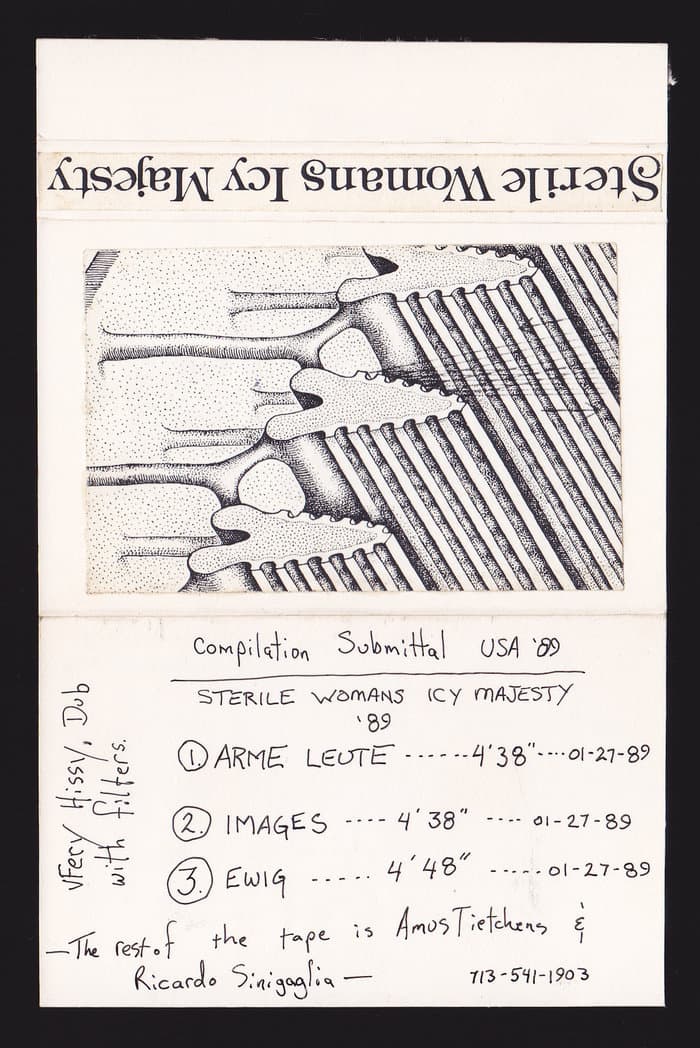 Sterile Womans Icy Majesty
Compilation Submittal USA '89
STERILE WOMANS ICY MAJESTY
'89
1. ARME LEUTE ------4'38"----01-27-89
2. IMAGES ---- 4'38" ---- 01-27-89
3. EWIG ----- 4'48" ----- 01-27-89
vFery Hissy, Dub
with filters.
—The rest of the tape is Amus Tietchens &
Ricardo Sinigaglia —
713-541-1903